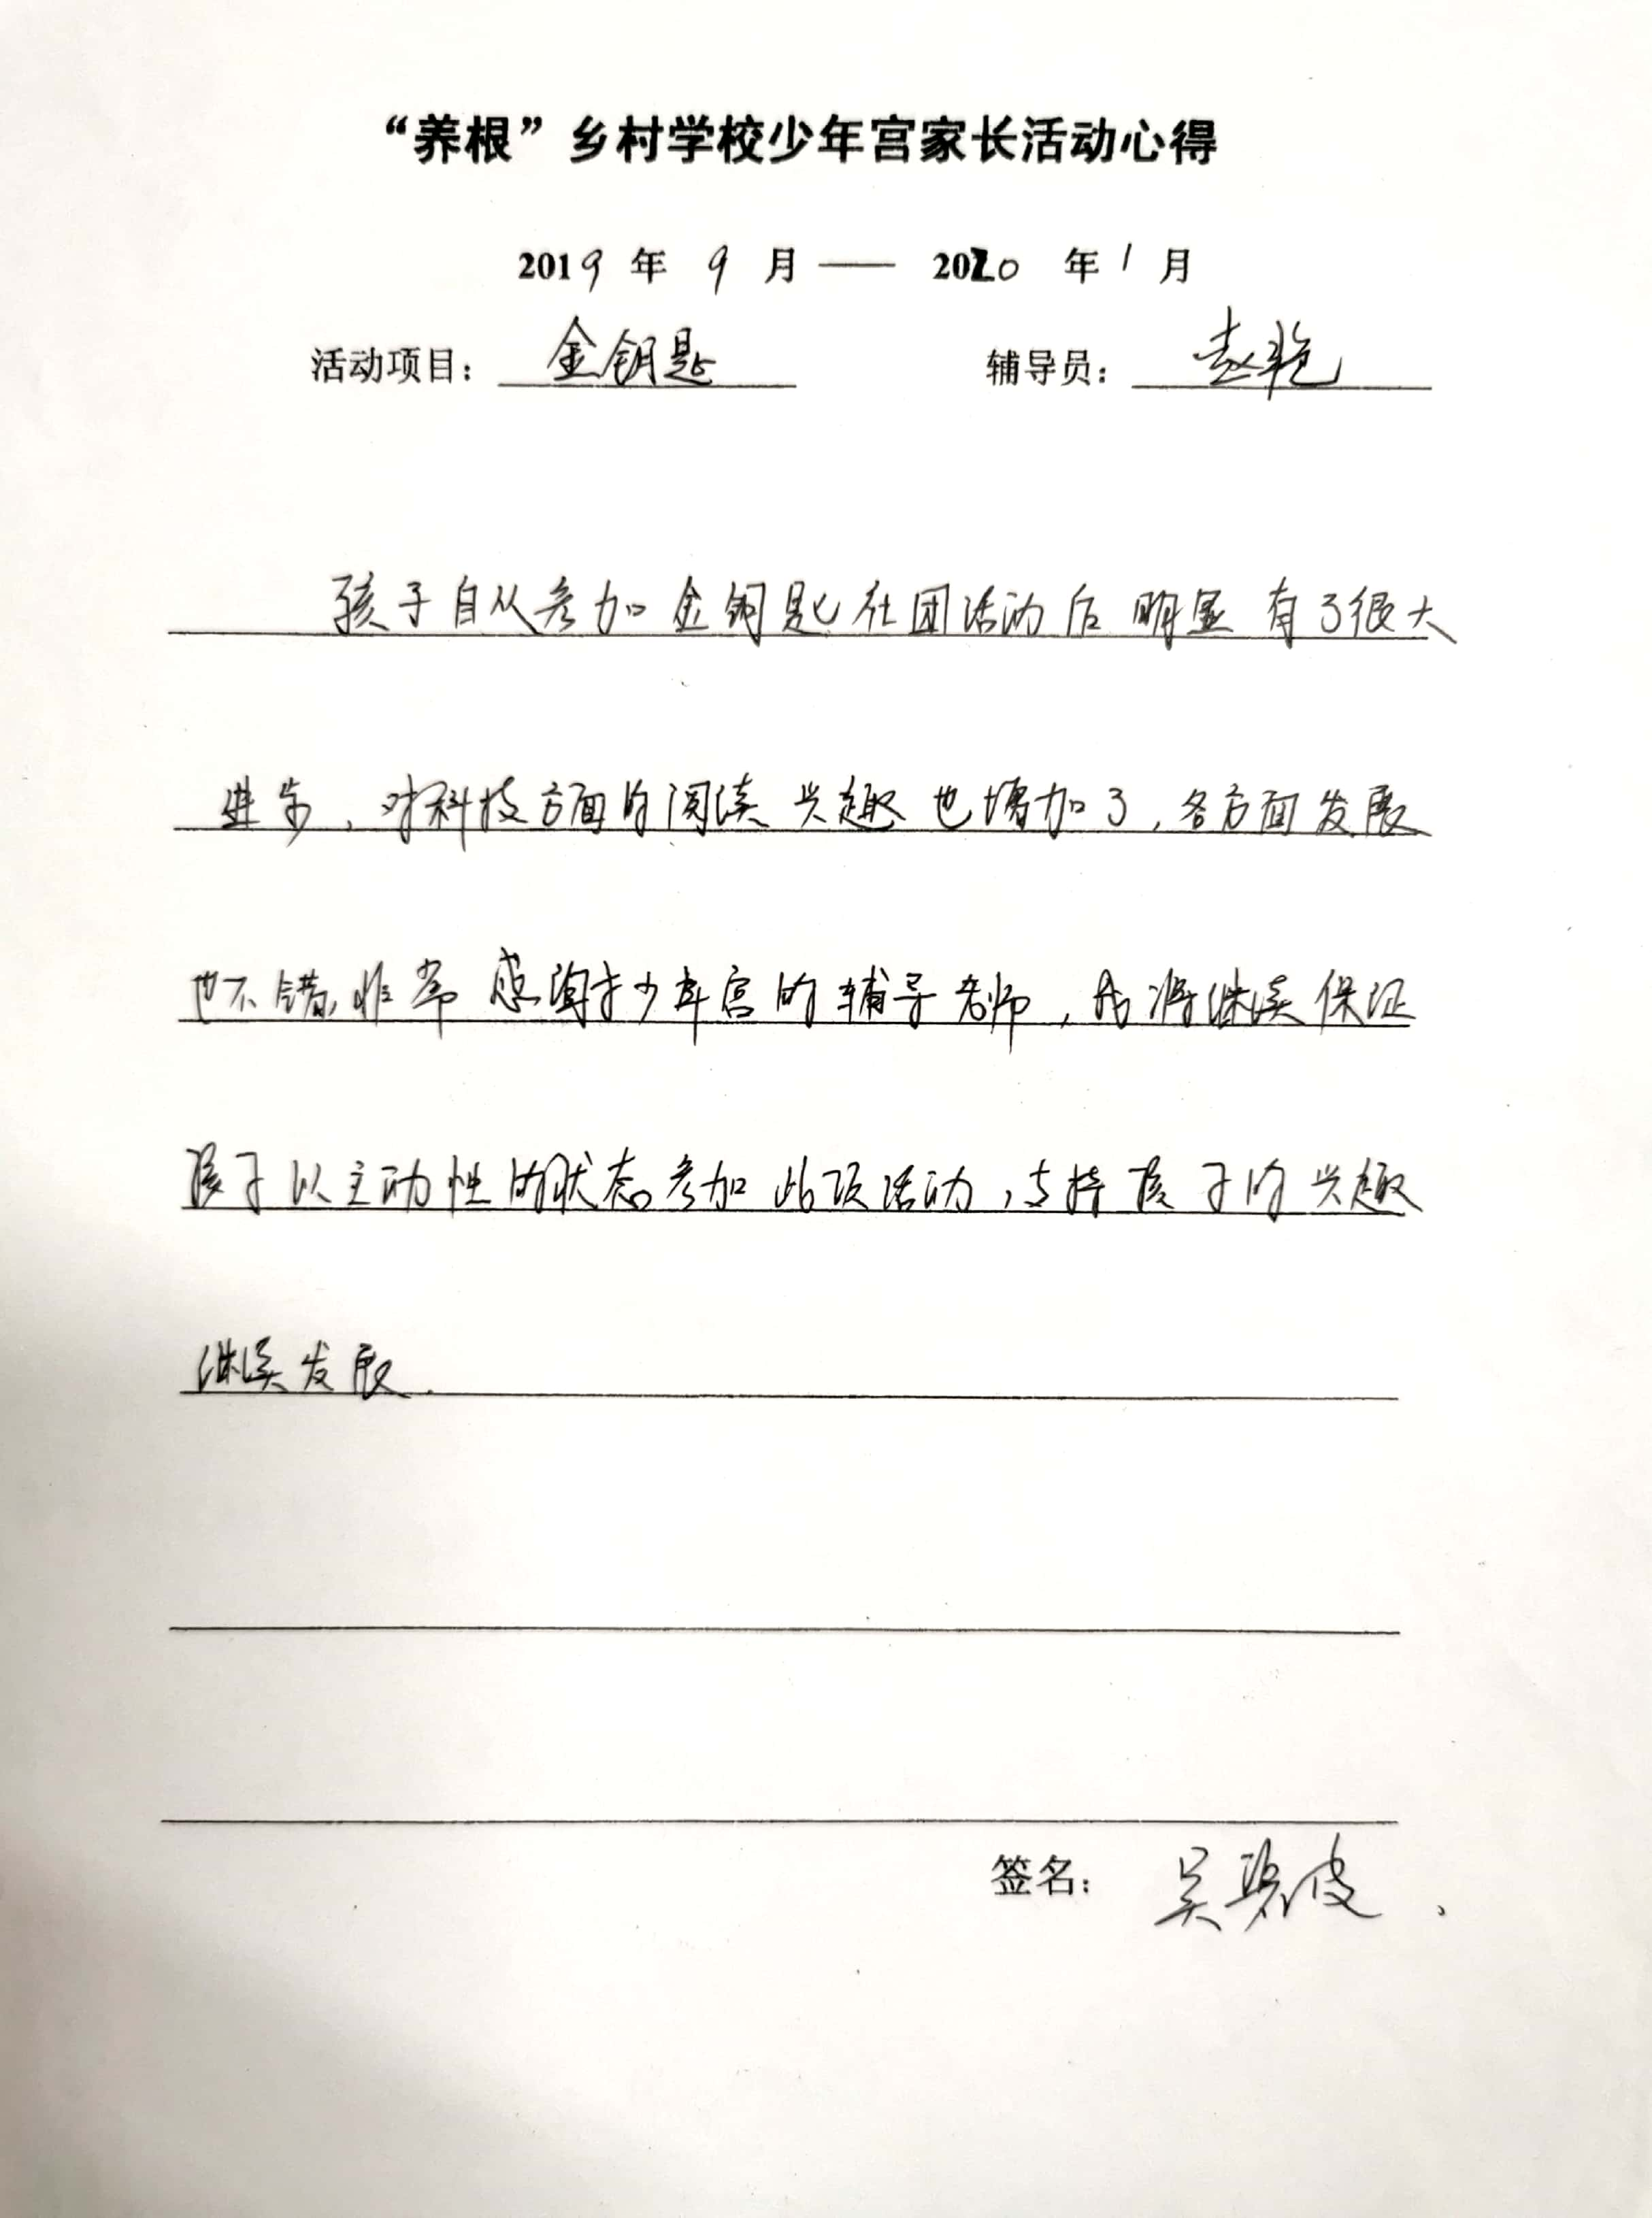 “养根”乡村学校少年宫家长活动心得
2019 年 9 月 —— 2020 年 1 月
活动项目： 金钥匙 辅导员： 赵艳
孩子自从参加金钥匙社团活动后明显有了很大
进步，对科技方面的阅读兴趣也增加了，各方面发展
也不错，非常感谢少年宫的辅导老师，我将继续保证
孩子以主动性的状态参加此项活动，支持孩子的兴趣
继续发展.
签名： 吴